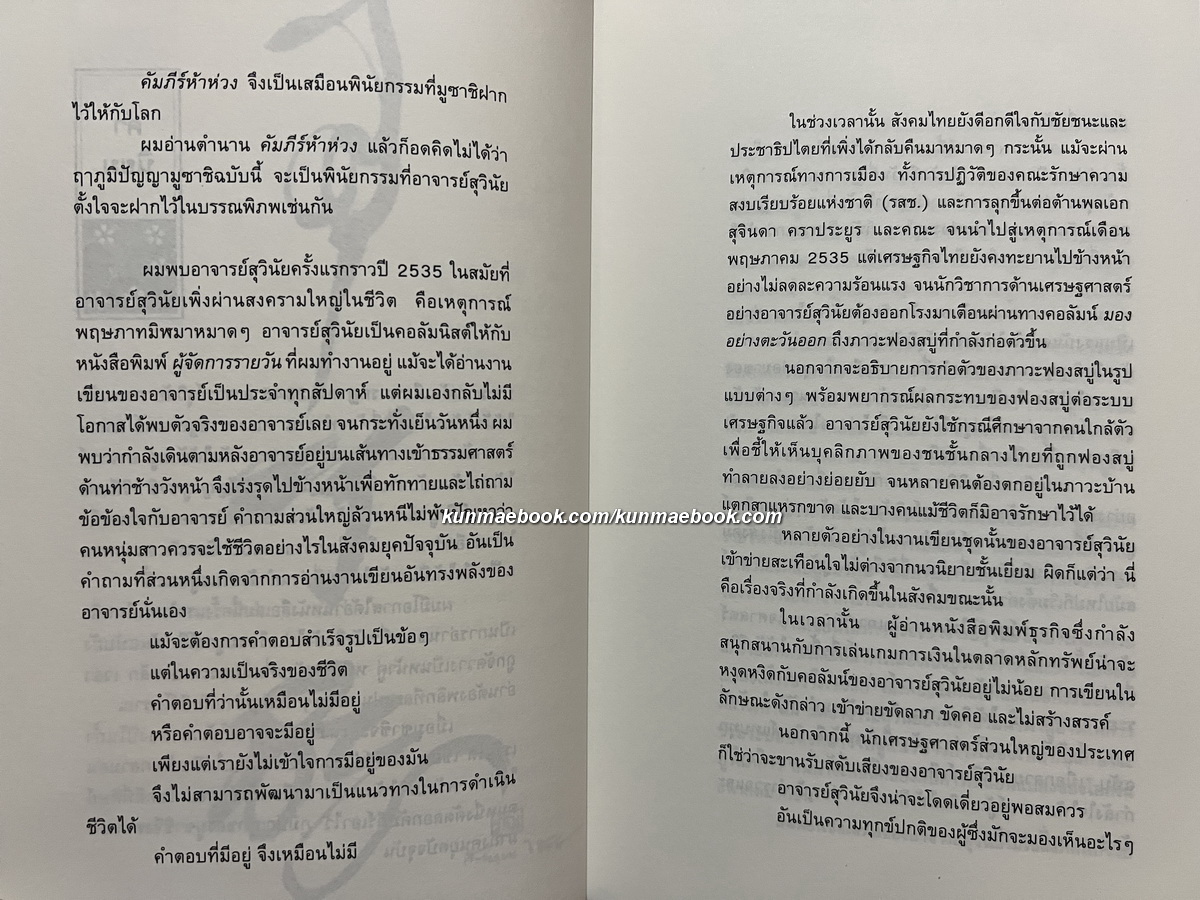 คัมภีร์ห้าห่วง จึงเป็นเสมือนพินัยกรรมที่มูซาชิฝาก
ไว้ให้กับโลก
ผมอ่านตำนาน คัมภีร์ห้าห่วง แล้วก็อดคิดไม่ได้ว่า
ฤาภูมิปัญญามูซาชิฉบับนี้ จะเป็นพินัยกรรมที่อาจารย์สุวินัย
ตั้งใจจะฝากไว้ในบรรณพิภพเช่นกัน
ผมพบอาจารย์สุวินัยครั้งแรกราวปี 2535 ในสมัยที่
อาจารย์สุวินัยเพิ่งผ่านสงครามใหญ่ในชีวิต คือเหตุการณ์
พฤษภาทมิฬมาหมาดๆ อาจารย์สุวินัยเป็นคอลัมนิสต์ให้กับ
หนังสือพิมพ์ ผู้จัดการรายวัน ที่ผมทำงานอยู่ แม้จะได้อ่านงาน
เขียนของอาจารย์เป็นประจำทุกสัปดาห์ แต่ผมเองกลับไม่มี
โอกาสได้พบตัวจริงของอาจารย์เลย จนกระทั่งเย็นวันหนึ่ง ผม
พบว่ากำลังเดินตามหลังอาจารย์อยู่บนเส้นทางเข้าธรรมศาสตร์
ด้านท่าช้างวังหน้า จึงเร่งรุดไปข้างหน้าเพื่อทักทายและไถ่ถาม
ข้อข้องใจกับอาจารย์ คำถามส่วนใหญ่ล้วนหนีไม่พ้นปัญหาว่า
คนหนุ่มสาวควรจะใช้ชีวิตอย่างไรในสังคมยุคปัจจุบัน อันเป็น
คำถามที่ส่วนหนึ่งเกิดจากการอ่านงานเขียนอันทรงพลังของ
อาจารย์นั่นเอง
แม้จะต้องการคำตอบสำเร็จรูปเป็นข้อๆ
แต่ในความเป็นจริงของชีวิต
คำตอบที่ว่านั้นเหมือนไม่มีอยู่
หรือคำตอบอาจจะมีอยู่
เพียงแต่เรายังไม่เข้าใจการมีอยู่ของมัน
จึงไม่สามารถพัฒนามาเป็นแนวทางในการดำเนิน
ชีวิตได้
คำตอบที่มีอยู่ จึงเหมือนไม่มี
ในช่วงเวลานั้น สังคมไทยยังดีอกดีใจกับชัยชนะและ
ประชาธิปไตยที่เพิ่งได้กลับคืนมาหมาดๆ กระนั้น แม้จะผ่าน
เหตุการณ์ทางการเมือง ทั้งการปฏิวัติของคณะรักษาความ
สงบเรียบร้อยแห่งชาติ (รสช.) และการลุกขึ้นต่อต้านพลเอก
สุจินดา คราประยูร และคณะ จนนำไปสู่เหตุการณ์เดือน
พฤษภาคม 2535 แต่เศรษฐกิจไทยยังคงทะยานไปข้างหน้า
อย่างไม่ลดละความร้อนแรง จนนักวิชาการด้านเศรษฐศาสตร์
อย่างอาจารย์สุวินัยต้องออกโรงมาเตือนผ่านทางคอลัมน์ มอง
อย่างตะวันออก ถึงภาวะฟองสบู่ที่กำลังก่อตัวขึ้น
นอกจากจะอธิบายการก่อตัวของภาวะฟองสบู่ในรูป
แบบต่างๆ พร้อมพยากรณ์ผลกระทบของฟองสบู่ต่อระบบ
เศรษฐกิจแล้ว อาจารย์สุวินัยยังใช้กรณีศึกษาจากคนใกล้ตัว
เพื่อชี้ให้เห็นบุคลิกภาพของชนชั้นกลางไทยที่ถูกฟองสบู่
ทำลายลงอย่างย่อยยับ จนหลายคนต้องตกอยู่ในภาวะบ้าน
แตกสาแหรกขาด และบางคนแม้ชีวิตก็มิอาจรักษาไว้ได้
kunmaebook.com/kunmaebook.com
หลายตัวอย่างในงานเขียนชุดนั้นของอาจารย์สุวินัย
เข้าข่ายสะเทือนใจไม่ต่างจากนวนิยายชั้นเยี่ยม ผิดก็แต่ว่า นี่
คือเรื่องจริงที่กำลังเกิดขึ้นในสังคมขณะนั้น
ในเวลานั้น ผู้อ่านหนังสือพิมพ์ธุรกิจซึ่งกำลัง
สนุกสนานกับการเล่นเกมการเงินในตลาดหลักทรัพย์น่าจะ
หงุดหงิดกับคอลัมน์ของอาจารย์สุวินัยอยู่ไม่น้อย การเขียนใน
ลักษณะดังกล่าว เข้าข่ายขัดลาภ ขัดคอ และไม่สร้างสรรค์
นอกจากนี้ นักเศรษฐศาสตร์ส่วนใหญ่ของประเทศ
ก็ใช่ว่าจะขานรับสดับเสียงของอาจารย์สุวินัย
อาจารย์สุวินัยจึงน่าจะโดดเดี่ยวอยู่พอสมควร
อันเป็นความทุกข์ปกติของผู้ซึ่งมักจะมองเห็นอะไรๆ